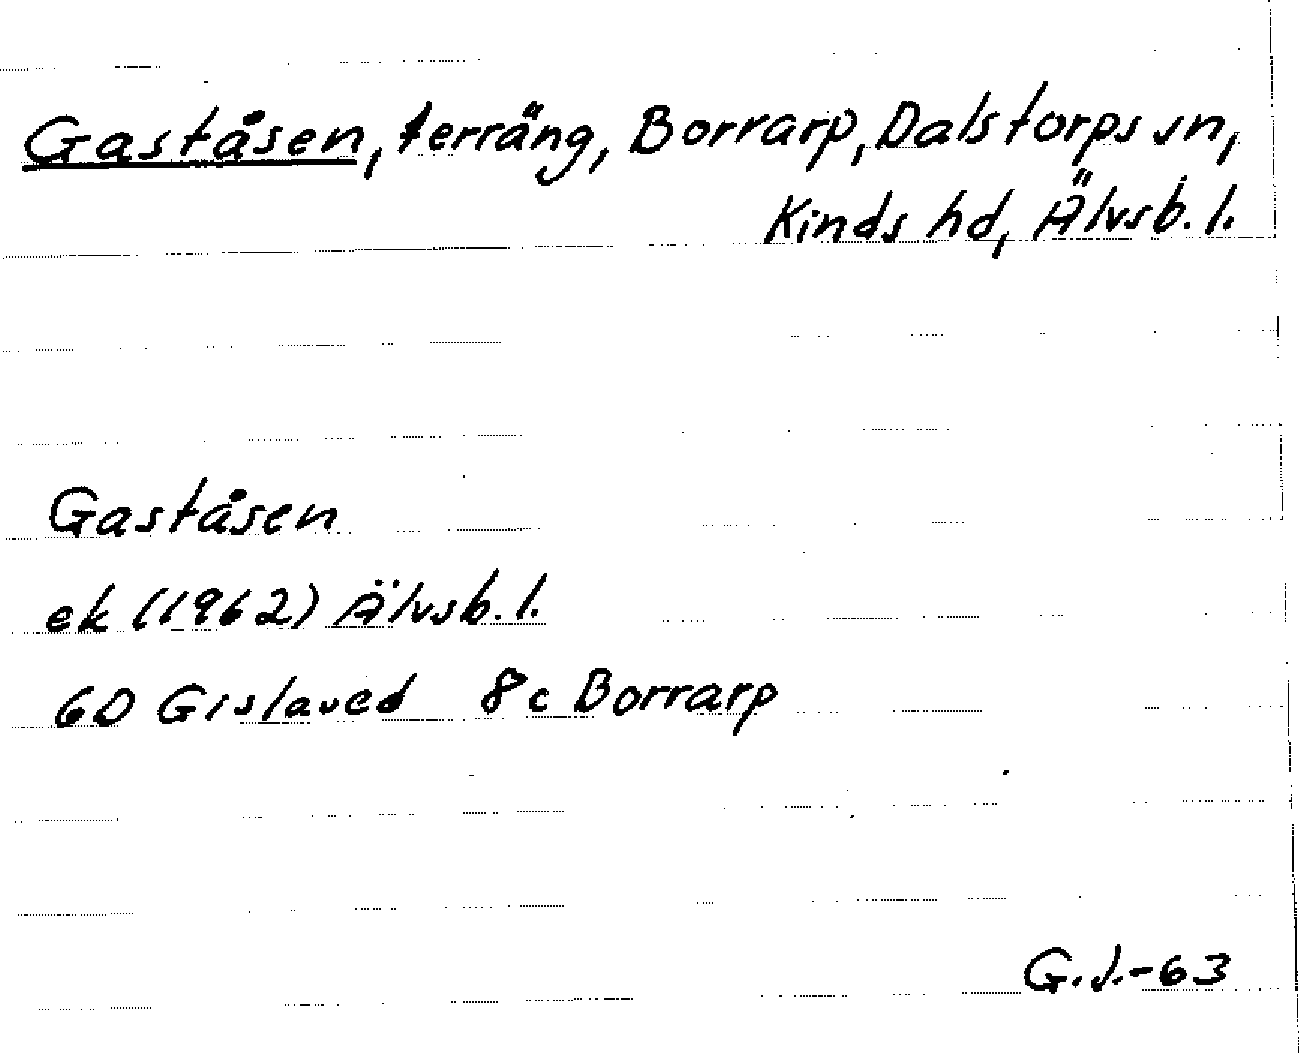 Gaståsen, terräng, Borrarp, Dalstorps sn,
Kinds hd, Älvsb. l.
Gaståsen
ek (1962) Älvsb. l.
6D Gislaved 8c Borrarp
G.J.-63